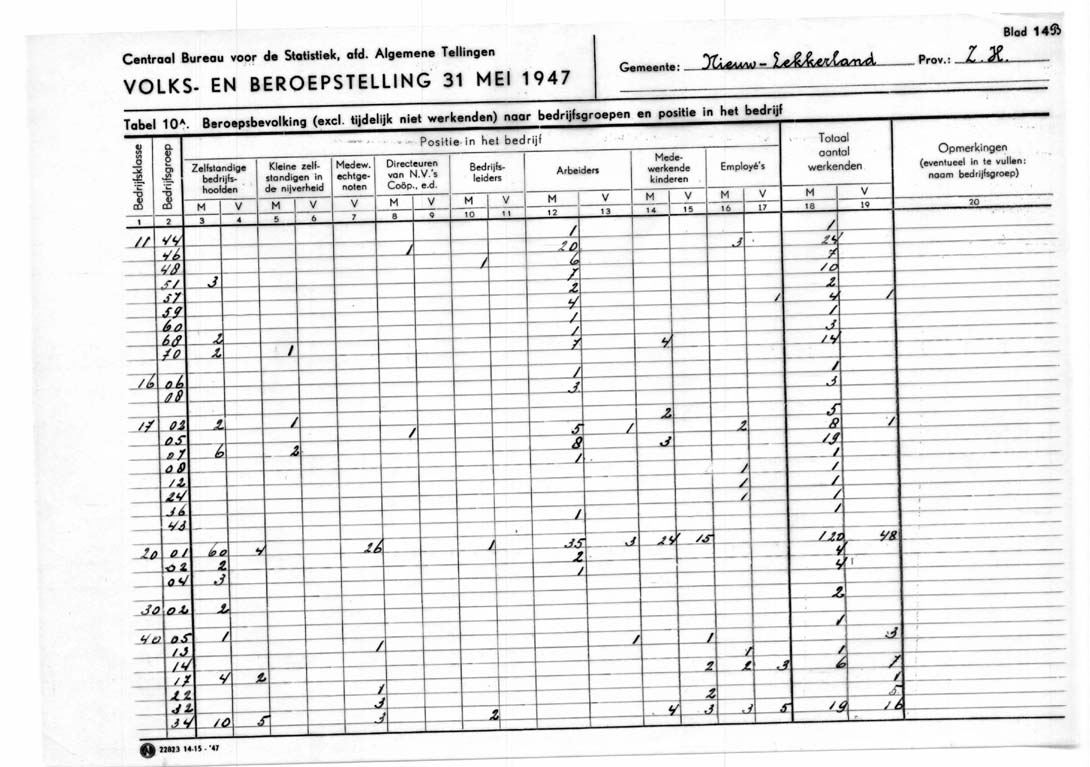 Blad 14B
Centraal Bureau voor de Statistiek, afd. Algemene Tellingen
VOLKS- EN BEROEPSTELLING 31 MEI 1947
Gemeente: Nieuw-Lekkerland Prov.: Z.H.
Tabel 10A. Beroepsbevolking (excl. tijdelijk niet werkenden) naar bedrijfsgroepen en positie in het bedrijf
Bedrijfsklasse
Bedrijfsgroep
Positie in het bedrijf
Zelfstandige bedrijfs-hoofden
Kleine zelf-standigen in de nijverheid
Medew. echtge-noten
Directeuren van N.V.'s Coöp., e.d.
Bedrijfs-leiders
Arbeiders
Mede-werkende kinderen
Employé's
Totaal aantal werkenden
Opmerkingen (eventueel in te vullen: naam bedrijfsgroep)
M V M V V M V M V M V M V M V M V
1 2 3 4 5 6 7 8 9 10 11 12 13 14 15 16 17 18 19 20
11 44 1 1
46 1 20 3 24
48 1 6 7
51 3 7 10
57 2 2
59 4 1 4 1
60 1 1
68 2 1 3
70 2 1 7 4 14
16 06 1 1
08 3 3
17 02 2 1 2 5
05 1 5 1 2 8 1
07 6 2 8 3 19
08 1 1
12 1 1
24 1 1
36 1 1
43 1 1
20 01 60 4 26 1 35 3 24 15 120 48
02 2 2 4
04 3 1 4
30 02 2 2
40 05 1 1
13 1 1 1 3
14 1 1
17 4 2 2 2 3 6 7
22 1 1
32 3 2 5
34 10 5 3 2 4 3 3 5 19 16
N 22823 14-15 - '47